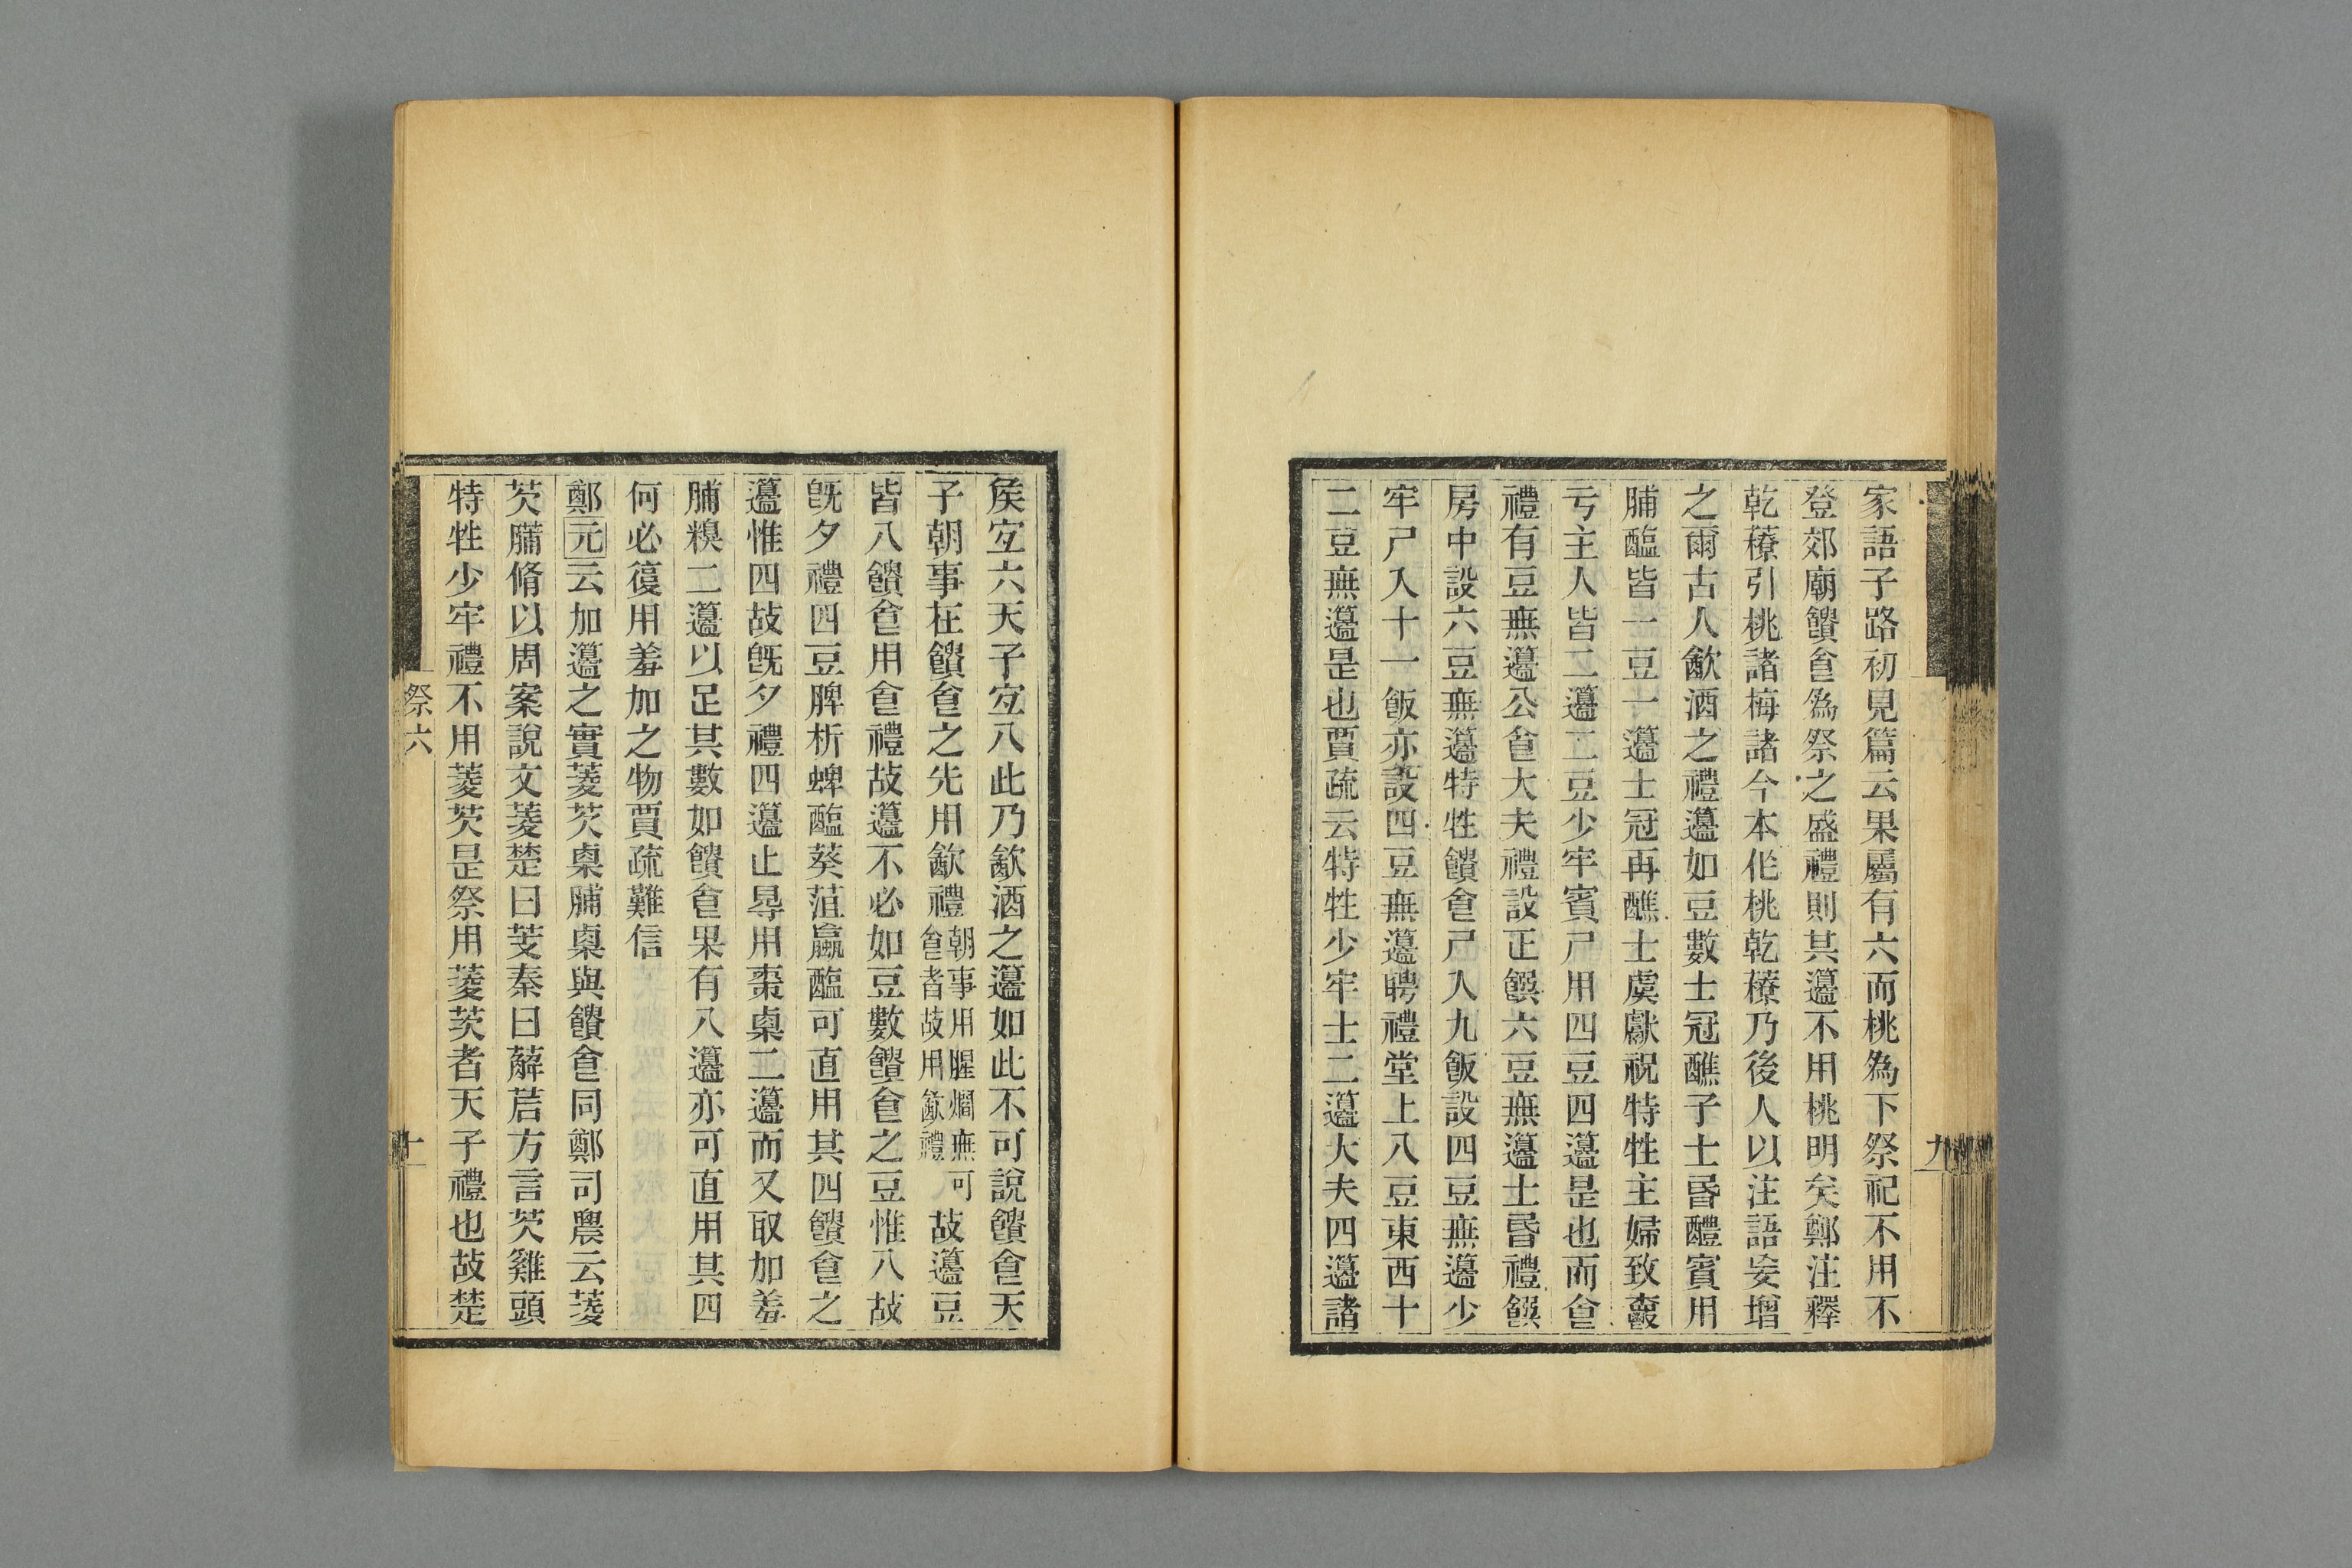 家語子路初見篇云果屬有六而桃為下祭祀不用不
登郊廟饋食為祭之盛禮則其籩不用桃明矣鄭注釋
乾䕩引桃諸梅諸今本作桃乾䕩乃後人以注語妄增
之爾古人飮酒之禮籩如豆數士冠醮子士昬醴賓用
脯醢皆一豆一籩士冠再醮士虞獻祝特牲主婦致爵
亏主人皆二籩二豆少牢賓尸用四豆四籩是也而食
禮有豆無籩公食大夫禮設正饌六豆無籩士昬禮饌
房中設六豆無籩特牲饋食尸入九飯設四豆無籩少
牢尸入十一飯亦設四豆無籩聘禮堂上八豆東西十
二豆無籩是也賈疏云特牲少牢士二籩大夫四籩諸
九
矦宐六天子宐八此乃飮酒之籩如此不可說饋食天
子朝事在饋食之先用飮禮朝事用腥爓無可食者故用飮禮故籩豆
皆八饋食用食禮故籩不必如豆數饋食之豆惟八故
旣夕禮四豆脾析蜱醢葵菹蠃醢可直用其四饋食之
籩惟四故旣夕禮四籩止㝵用棗㮚二籩而又取加羞
脯糗二籩以足其數如饋食果有八籩亦可直用其四
何必復用羞加之物賈疏難信
鄭元云加籩之實蔆芡㮚脯㮚與饋食同鄭司農云蔆
芡膴脩以周案說文蔆楚曰芰秦曰薢茩方言芡雞頭
特牲少牢禮不用蔆芡是祭用蔆芡者天子禮也故楚
祭六
十